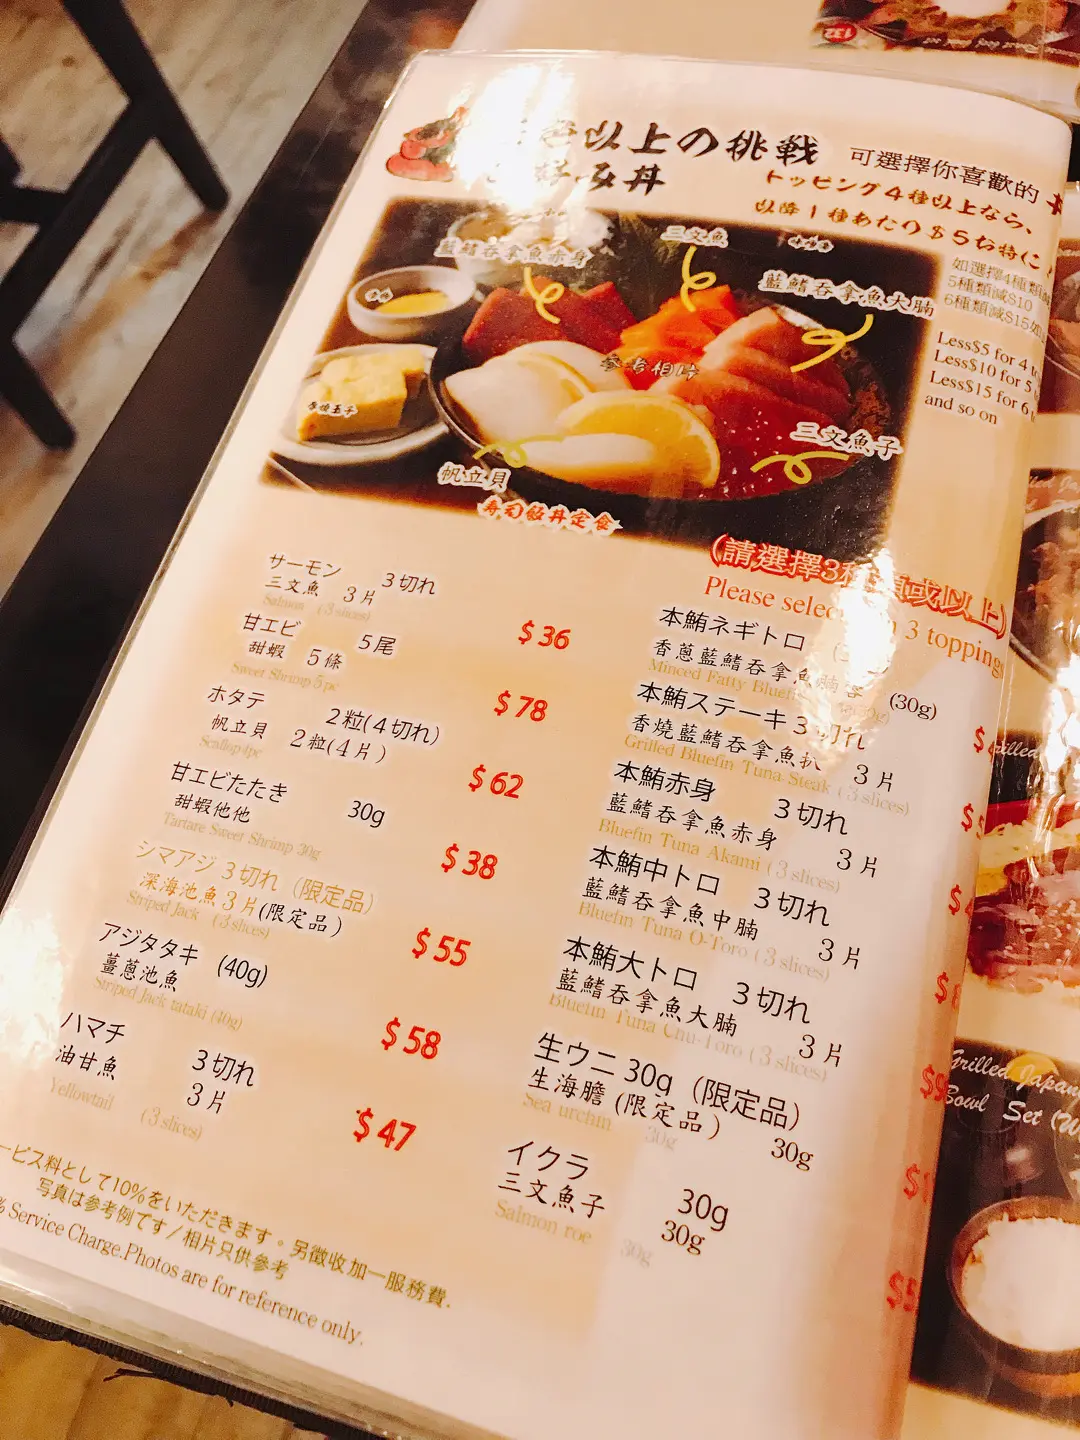 以上の挑戦
み丼
可選擇你喜歡的
トッピング4種以上なら、
以降1種あたの$5お特(こ
如選擇4種類
5種類減$10
6種類減$15如
Less$5 for 4 t
Less$10 for 5
Less$15 for 6
and so on
藍鰭吞拿魚赤身
三文魚
藍鰭吞拿魚大腩
參考相片
香燒玉子
三文魚子
帆立貝
寿司飯丼定食
(請選擇3種類或以上)
Please selec 3 toppings
サーモン 3切れ
三文魚 3片
Salmon (3 slices)
$36
甘エビ 5尾
甜蝦 5條
Sweet Shrimp 5pc
$78
ホタテ 2粒(4切れ)
帆立貝 2粒(4片)
Scallop 4pc
$62
甘エビたたき 30g
甜蝦他他
Tartare Sweet Shrimp 30g
$38
シマアジ 3切れ (限定品)
深海池魚 3片(限定品)
Striped Jack (3 slices)
$55
アジタタキ (40g)
薑蔥池魚
Striped Jack tataki (40g)
$58
ハマチ 3切れ
油甘魚 3片
Yellowtail (3 slices)
$47
本鮪ネギトロ
香蔥藍鰭吞拿魚腩蓉 (30g)
Minced Fatty Bluef
本鮪ステーキ 3切れ
香燒藍鰭吞拿魚扒 3片
Grilled Bluefin Tuna Steak (3 slices)
本鮪赤身 3切れ
藍鰭吞拿魚赤身 3片
Bluefin Tuna Akami (3 slices)
本鮪中トロ 3切れ
藍鰭吞拿魚中腩 3片
Bluefin Tuna O-Toro (3 slices)
本鮪大トロ 3切れ
藍鰭吞拿魚大腩 3片
Bluefin Tuna Chu-Toro (3 slices)
生ウニ 30g (限定品)
生海膽 (限定品) 30g
Sea urchin 30g
イクラ 30g
三文魚子 30g
Salmon roe 30g
ービス料として10%をいただきます。另徵收加一服務費.
写真は参考例です/相片只供參考
% Service Charge.Photos are for reference only.
132
Grilled Japan
Bowl Set (W